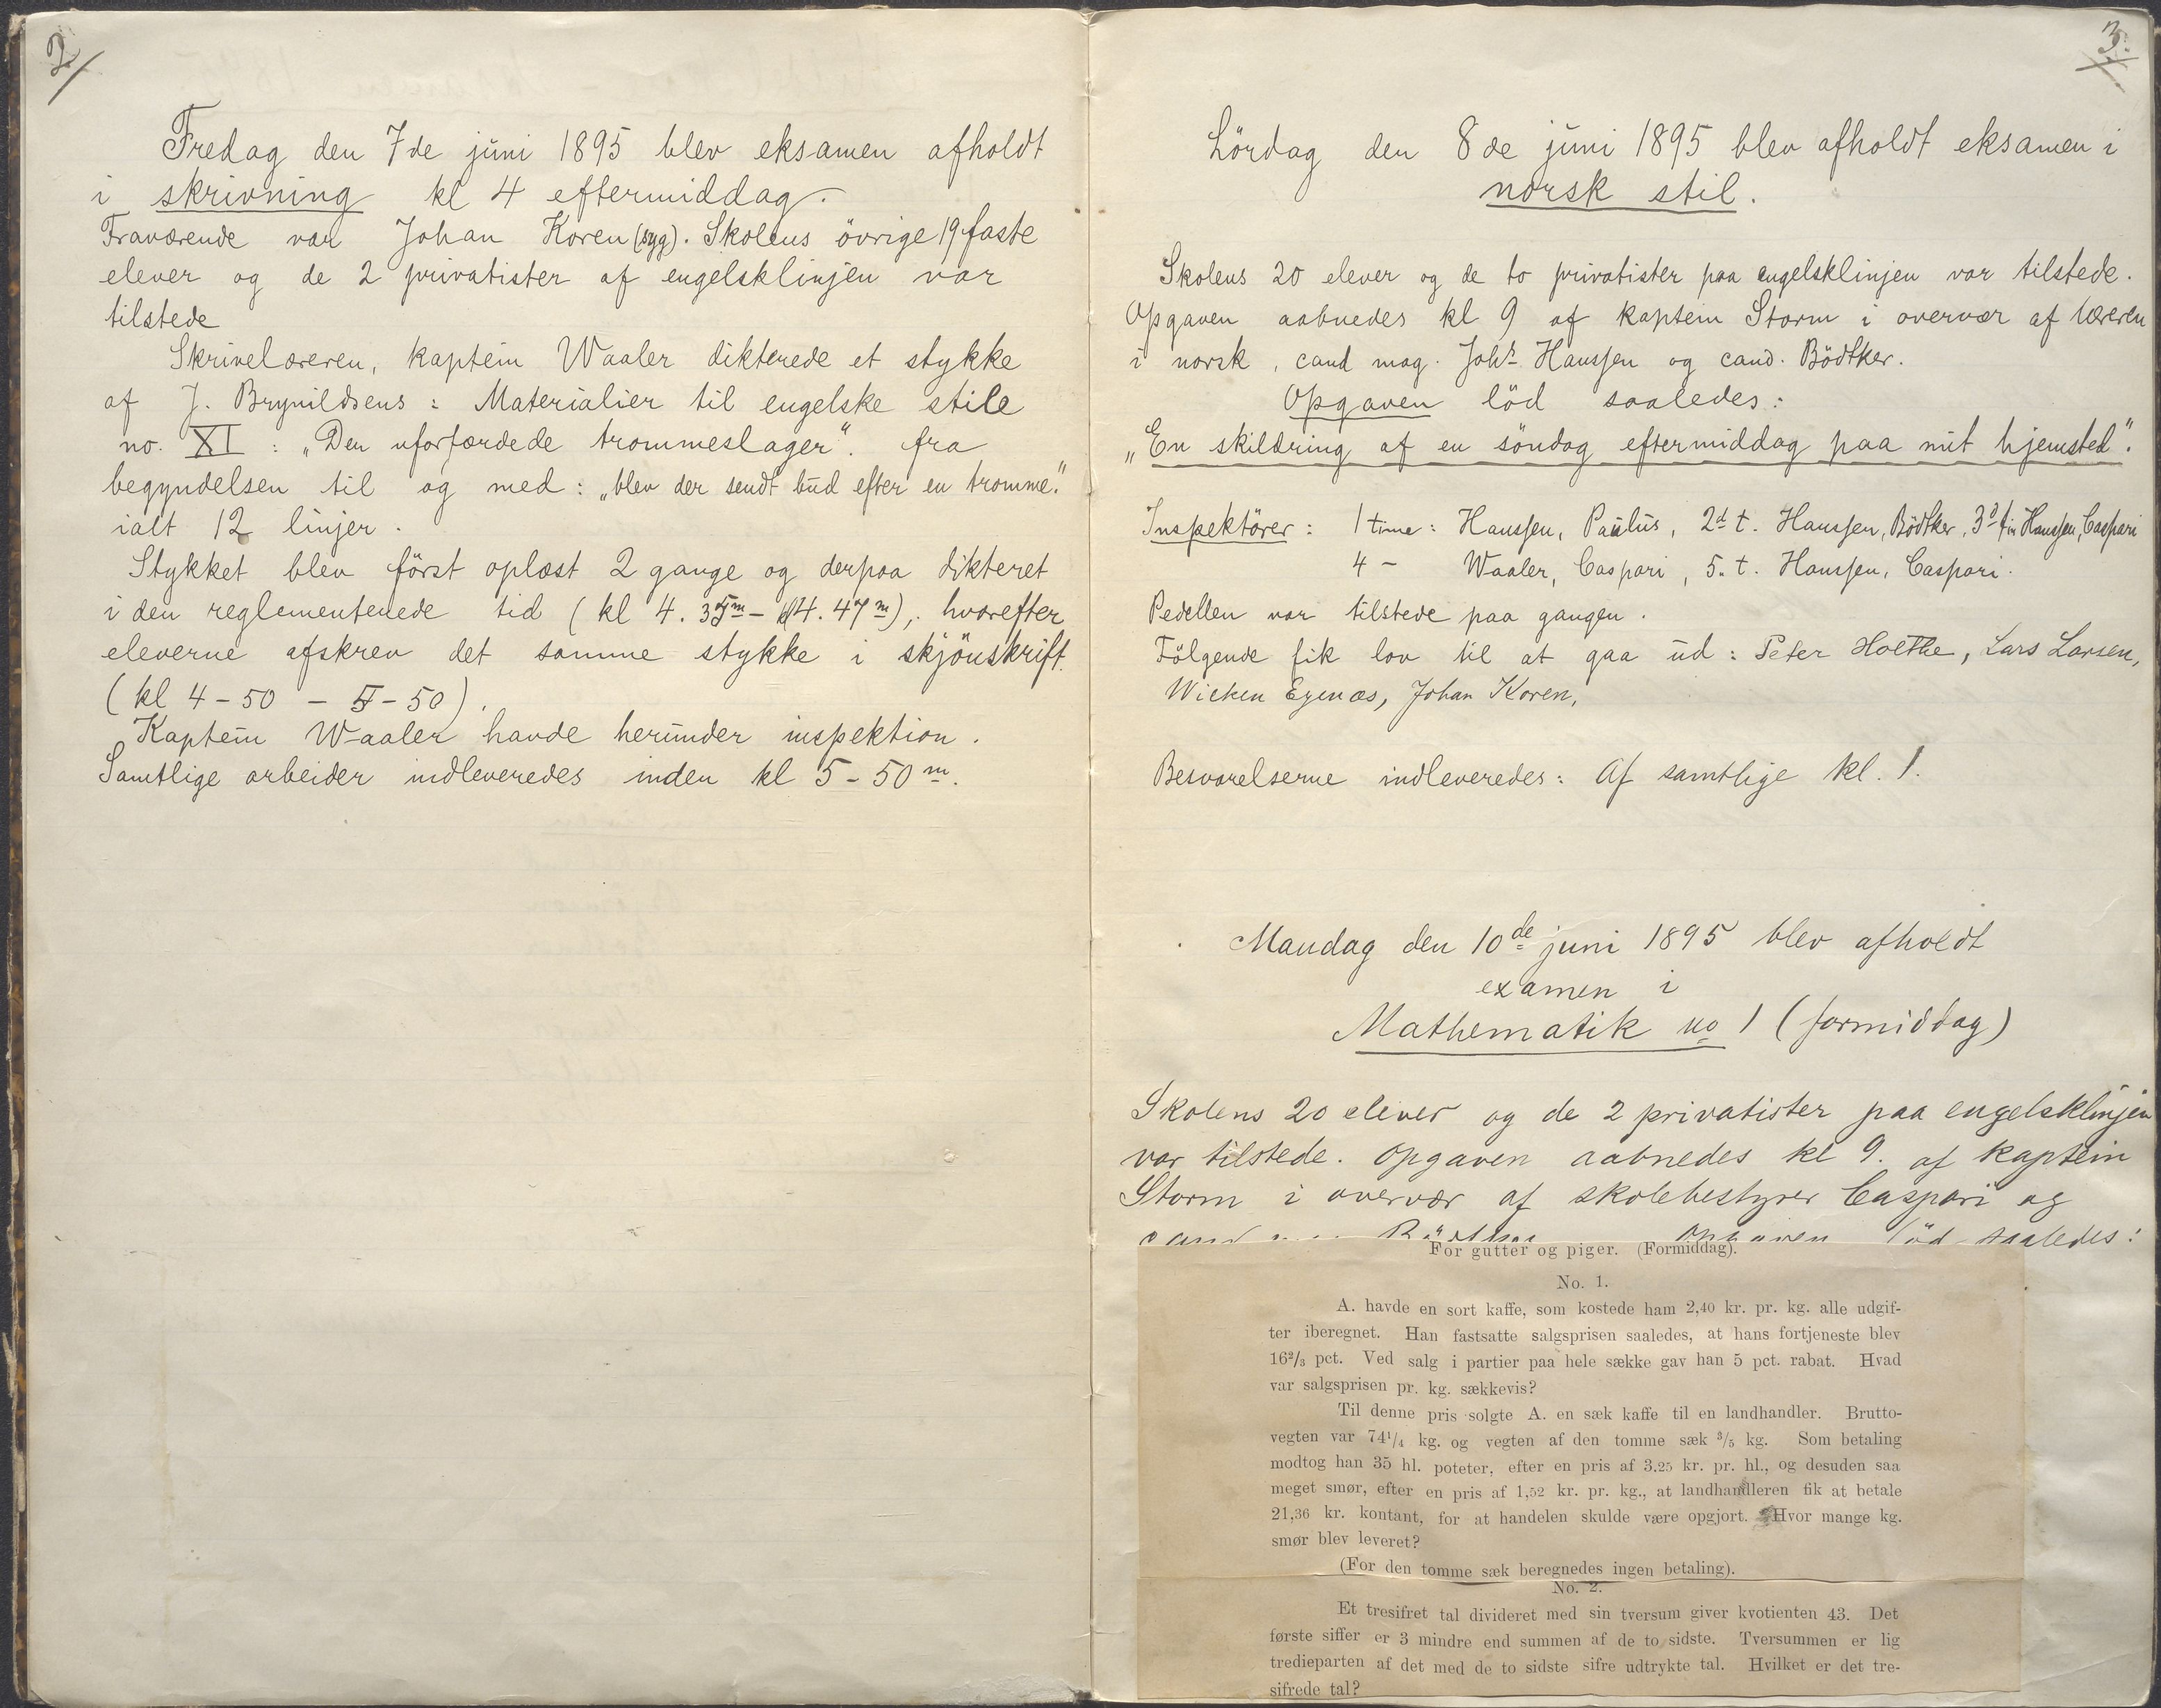 2/
Fredag den 7de juni 1895 blev eksamen afholdt
i skrivning kl 4 eftermiddag.
Fraværende var Johan Koren (syg). Skolens övrige 19 faste
elever og de 2 privatister af engelsklinjen var
tilstede
Skrivelæreren, kaptein Waaler dikterede et stykke
af J. Brynildsens: Materialier til engelske stile
no. XI: „Den uforfærdede trommeslager". fra
begyndelsen til og med: „blev der sendt bud efter en tromme."
ialt 12 linjer.
Stykket blev först oplæst 2 gange og derpaa dikteret
i den reglementerede tid (kl 4. 35m - kl 4. 47m), hvorefter
eleverne afskrev det samme stykke i skjönskrift.
(kl 4-50 - 5-50).
Kaptein Waaler havde herunder inspektion.
Samtlige arbeider indleveredes inden kl 5-50m.
3.
Lördag den 8de juni 1895 blev afholdt eksamen i
norsk stil.
Skolens 20 elever og de to privatister paa engelsklinjen var tilstede.
Opgaven aabnedes kl 9 af kaptein Storm i overvær af læreren
i norsk, cand mag. Johs Hanssen og cand. Bödtker.
Opgaven löd saaledes:
„En skildring af en söndag eftermiddag paa mit hjemsted".
Inspektörer: 1 time: Hanssen, Paulus, 2d t. Hanssen, Bödtker, 3d tim Hanssen, Caspari
4 - Waaler, Caspari, 5. t. Hanssen, Caspari.
Pedellen var tilstede paa gangen.
Fölgende fik lov til at gaa ud: Peter Holthe, Lars Larsen,
Wicken Egenæs, Johan Koren,
Besvarelserne indleveredes: Af samtlige kl. 1.
Mandag den 10de juni 1895 blev afholdt
examen i
Mathematik no 1 (formiddag)
Skolens 20 elever og de 2 privatister paa engelsklinjen
var tilstede. Opgaven aabnedes kl 9. af kaptein
Storm i overvær af skolebestyrer Caspari og
cand Bödtker Opgaven löd saaledes:
For gutter og piger. (Formiddag).
No. 1.
A. havde en sort kaffe, som kostede ham 2,40 kr. pr. kg. alle udgif-
ter iberegnet. Han fastsatte salgsprisen saaledes, at hans fortjeneste blev
16²/₃ pct. Ved salg i partier paa hele sække gav han 5 pct. rabat. Hvad
var salgsprisen pr. kg. sækkevis?
Til denne pris solgte A. en sæk kaffe til en landhandler. Brutto-
vegten var 74¹/₄ kg. og vegten af den tomme sæk ³/₅ kg. Som betaling
modtog han 35 hl. poteter, efter en pris af 3,25 kr. pr. hl., og desuden saa
meget smør, efter en pris af 1,52 kr. pr. kg., at landhandleren fik at betale
21,36 kr. kontant, for at handelen skulde være opgjort. Hvor mange kg.
smør blev leveret?
(For den tomme sæk beregnedes ingen betaling).
No. 2.
Et tresifret tal divideret med sin tversum giver kvotienten 43. Det
første siffer er 3 mindre end summen af de to sidste. Tversummen er lig
tredieparten af det med de to sidste sifre udtrykte tal. Hvilket er det tre-
sifrede tal?